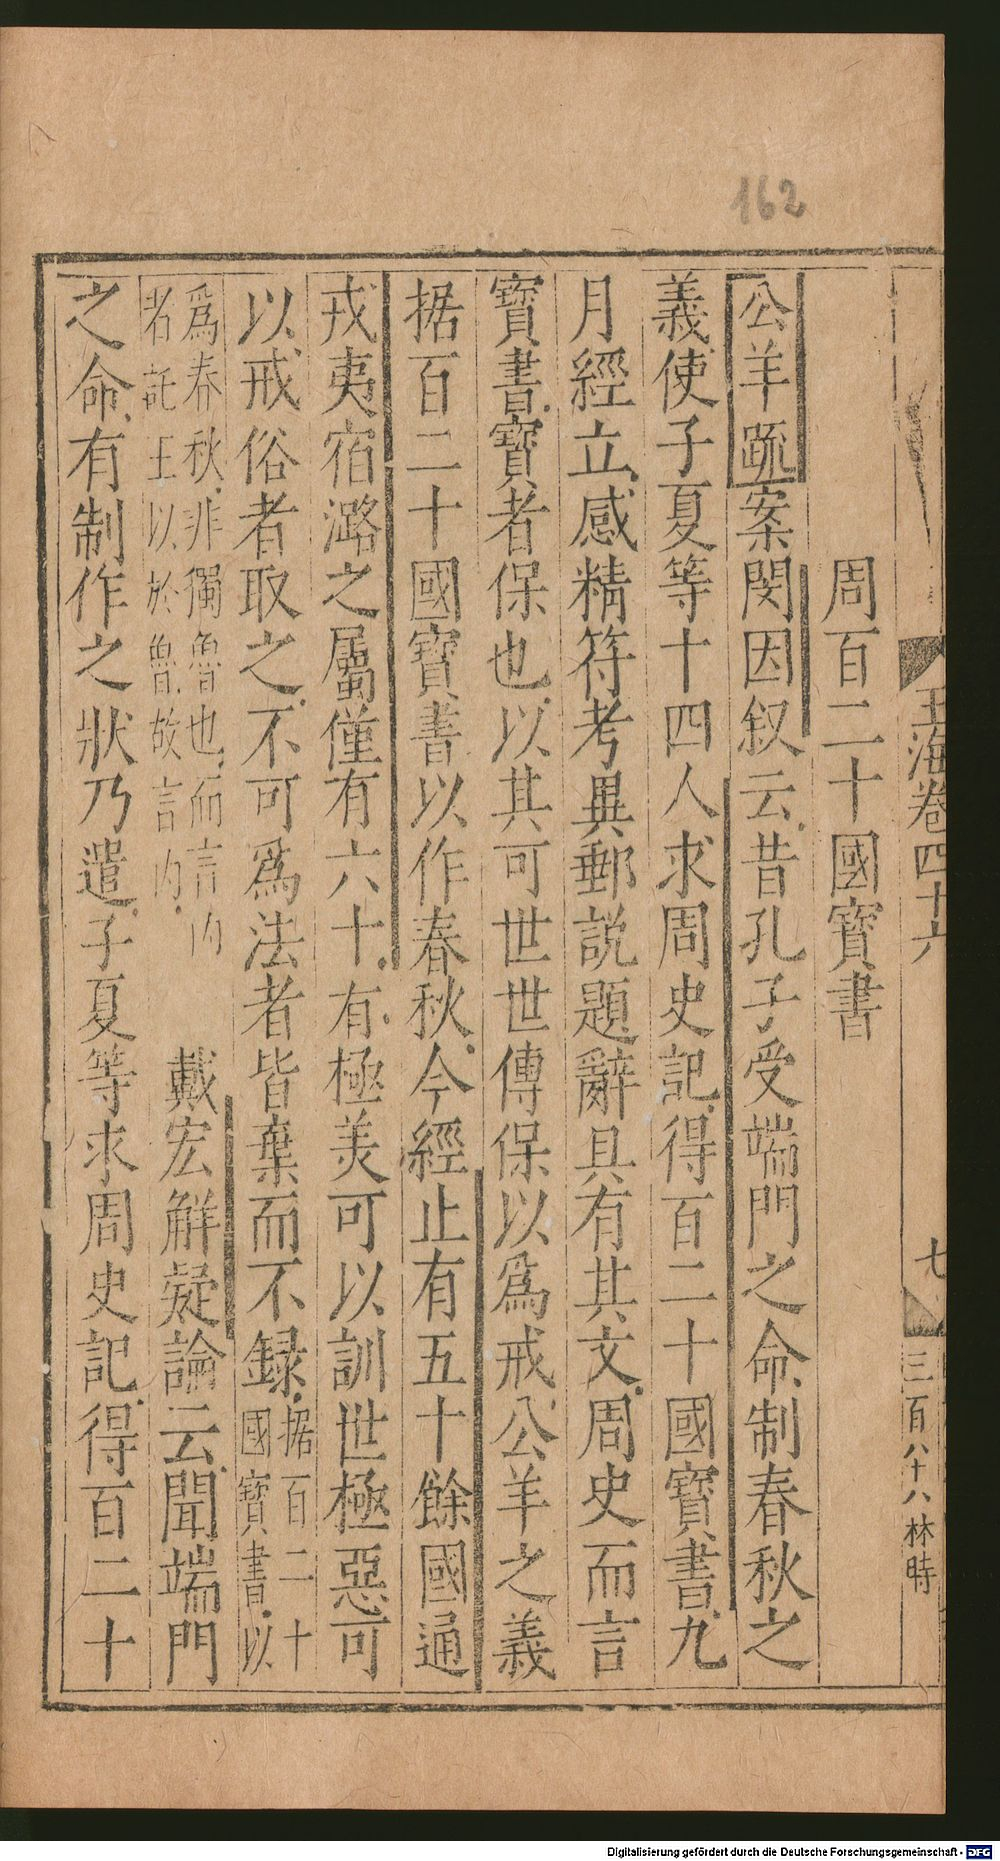 162
玉海卷四十六
七
三百八十八林時
周百二十國寶書
公羊疏案閔因叙云昔孔子受端門之命制春秋之
義使子夏等十四人求周史記得百二十國寶書九
月經立感精符考異郵說題辭具有其文周史而言
寶書寶者保也以其可世世傳保以爲戒公羊之義
据百二十國寶書以作春秋今經止有五十餘國通
戎夷宿潞之屬僅有六十有極美可以訓世極惡可
以戒俗者取之不可爲法者皆棄而不録
据百二十
國寶書以
爲春秋非獨魯也而言内
者託王以於魯故言内
戴宏解疑論云聞端門
之命有制作之狀乃遣子夏等求周史記得百二十
Digitalisierung gefördert durch die Deutsche Forschungsgemeinschaft - DFG